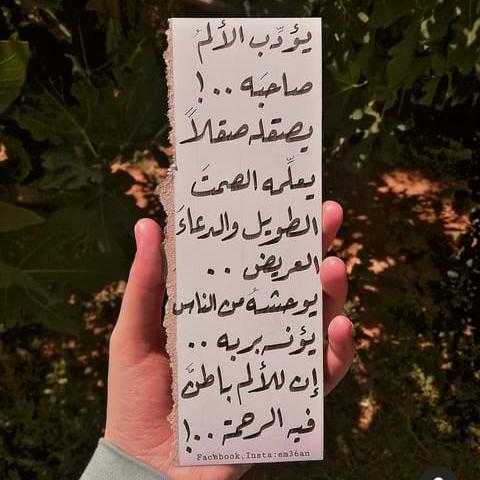 يؤدِّب الألمُ
صاحبَه ..!
يصقله صقلاً
يعلِّمه الصمتَ
الطويل والدعاءَ
العريض ..
يوحشهُ من الناس
يؤنسه بربه ..
إن للألم باطنٌ
فيه الرحمة ..!
Facebook,Insta:em36an